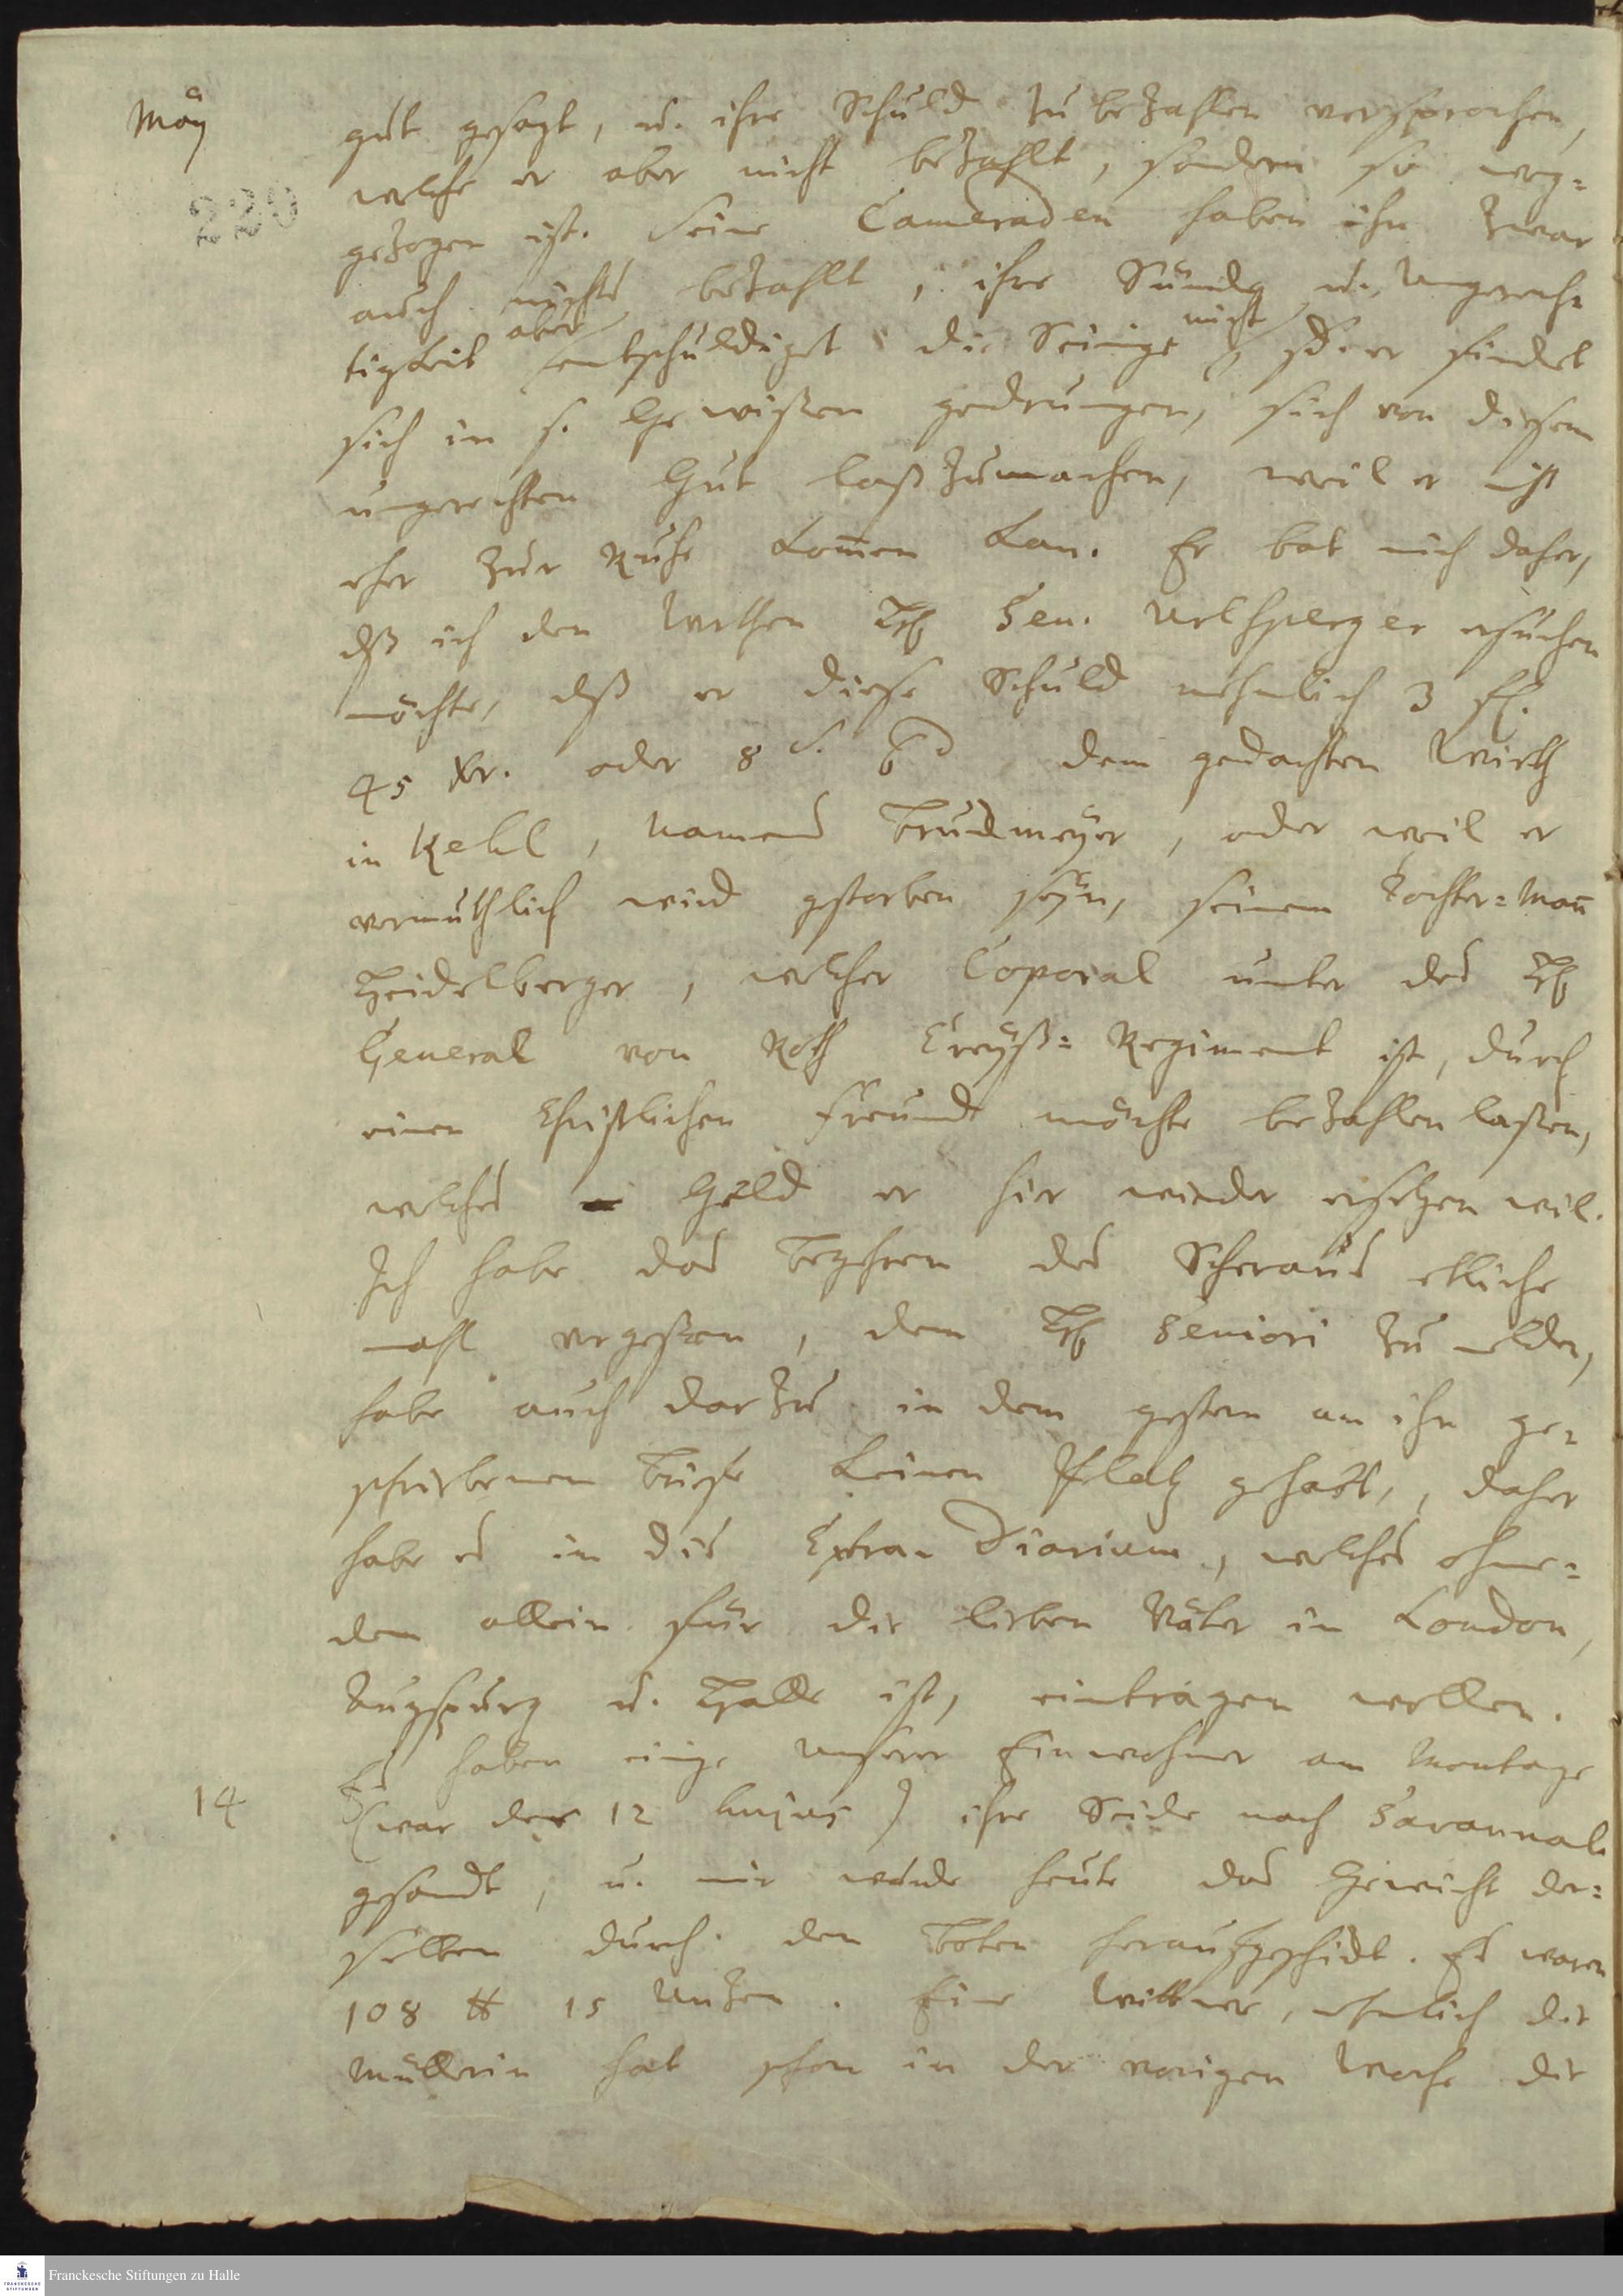 May
220
gut gesagt, u. ihre Schuld zu bezahlen versprochen,
welche er aber nicht bezahlt, sondern so weg=
gezogen ist. Seine Cameraden haben ihn zwar
auch nichts bezahlt, ihre Sünde u. Ungerech=
tigkeit aber entschuldiget die Seinige nicht, sd. er findet
sich in s. Gewißen gedrungen, sich von diesem
ungerechten Gut loßzumachen, weil er nicht
eher zur Ruhe kom̄en kan. Er bat mich daher,
dß ich den werthen H. Sen. Urlsperger ersuchen
möchte, dß er diese Schuld nehmlich 3 fl.
45 xr. oder 8 s. 6 d dem gedachten Wirth
in Kehl, Namens Brudmeyer, oder weil er
vermuthlich wird gestorben seyn, seinem Tochter=Man̄
Heidelberger, welcher Coporal unter des H.
General von Roth Creyß=Regiment ist, durch
einen Christlichen Freund möchte bezahlen laßen,
welches Geld er hier wieder ersetzen wil.
Ich habe das Begehren des Scheraus etliche
mahl vergeßen, dem H. Seniori zu melden,
habe auch darzu in dem gestern an ihn ge=
schriebenen Briefe keinen Platz gehabt, daher
habe es in dis Extra-Diarium, welches ohne=
dem allein für die lieben Väter in London,
Augspurg u. Halle ist, eintragen wollen.
14
Es haben einige unserer Einwohner am Montage
(war der 12 hujus) ihre Seide nach Savannah
gesandt, u. mir wurde heute das Gewicht der=
selben durch den Boten heraufgeschickt. Es waren
108 ℔ 15 Unzen. Eine Wittwe, nehmlich die
Müllerin hat schon in der vorigen Woche die
Franckesche Stiftungen zu Halle